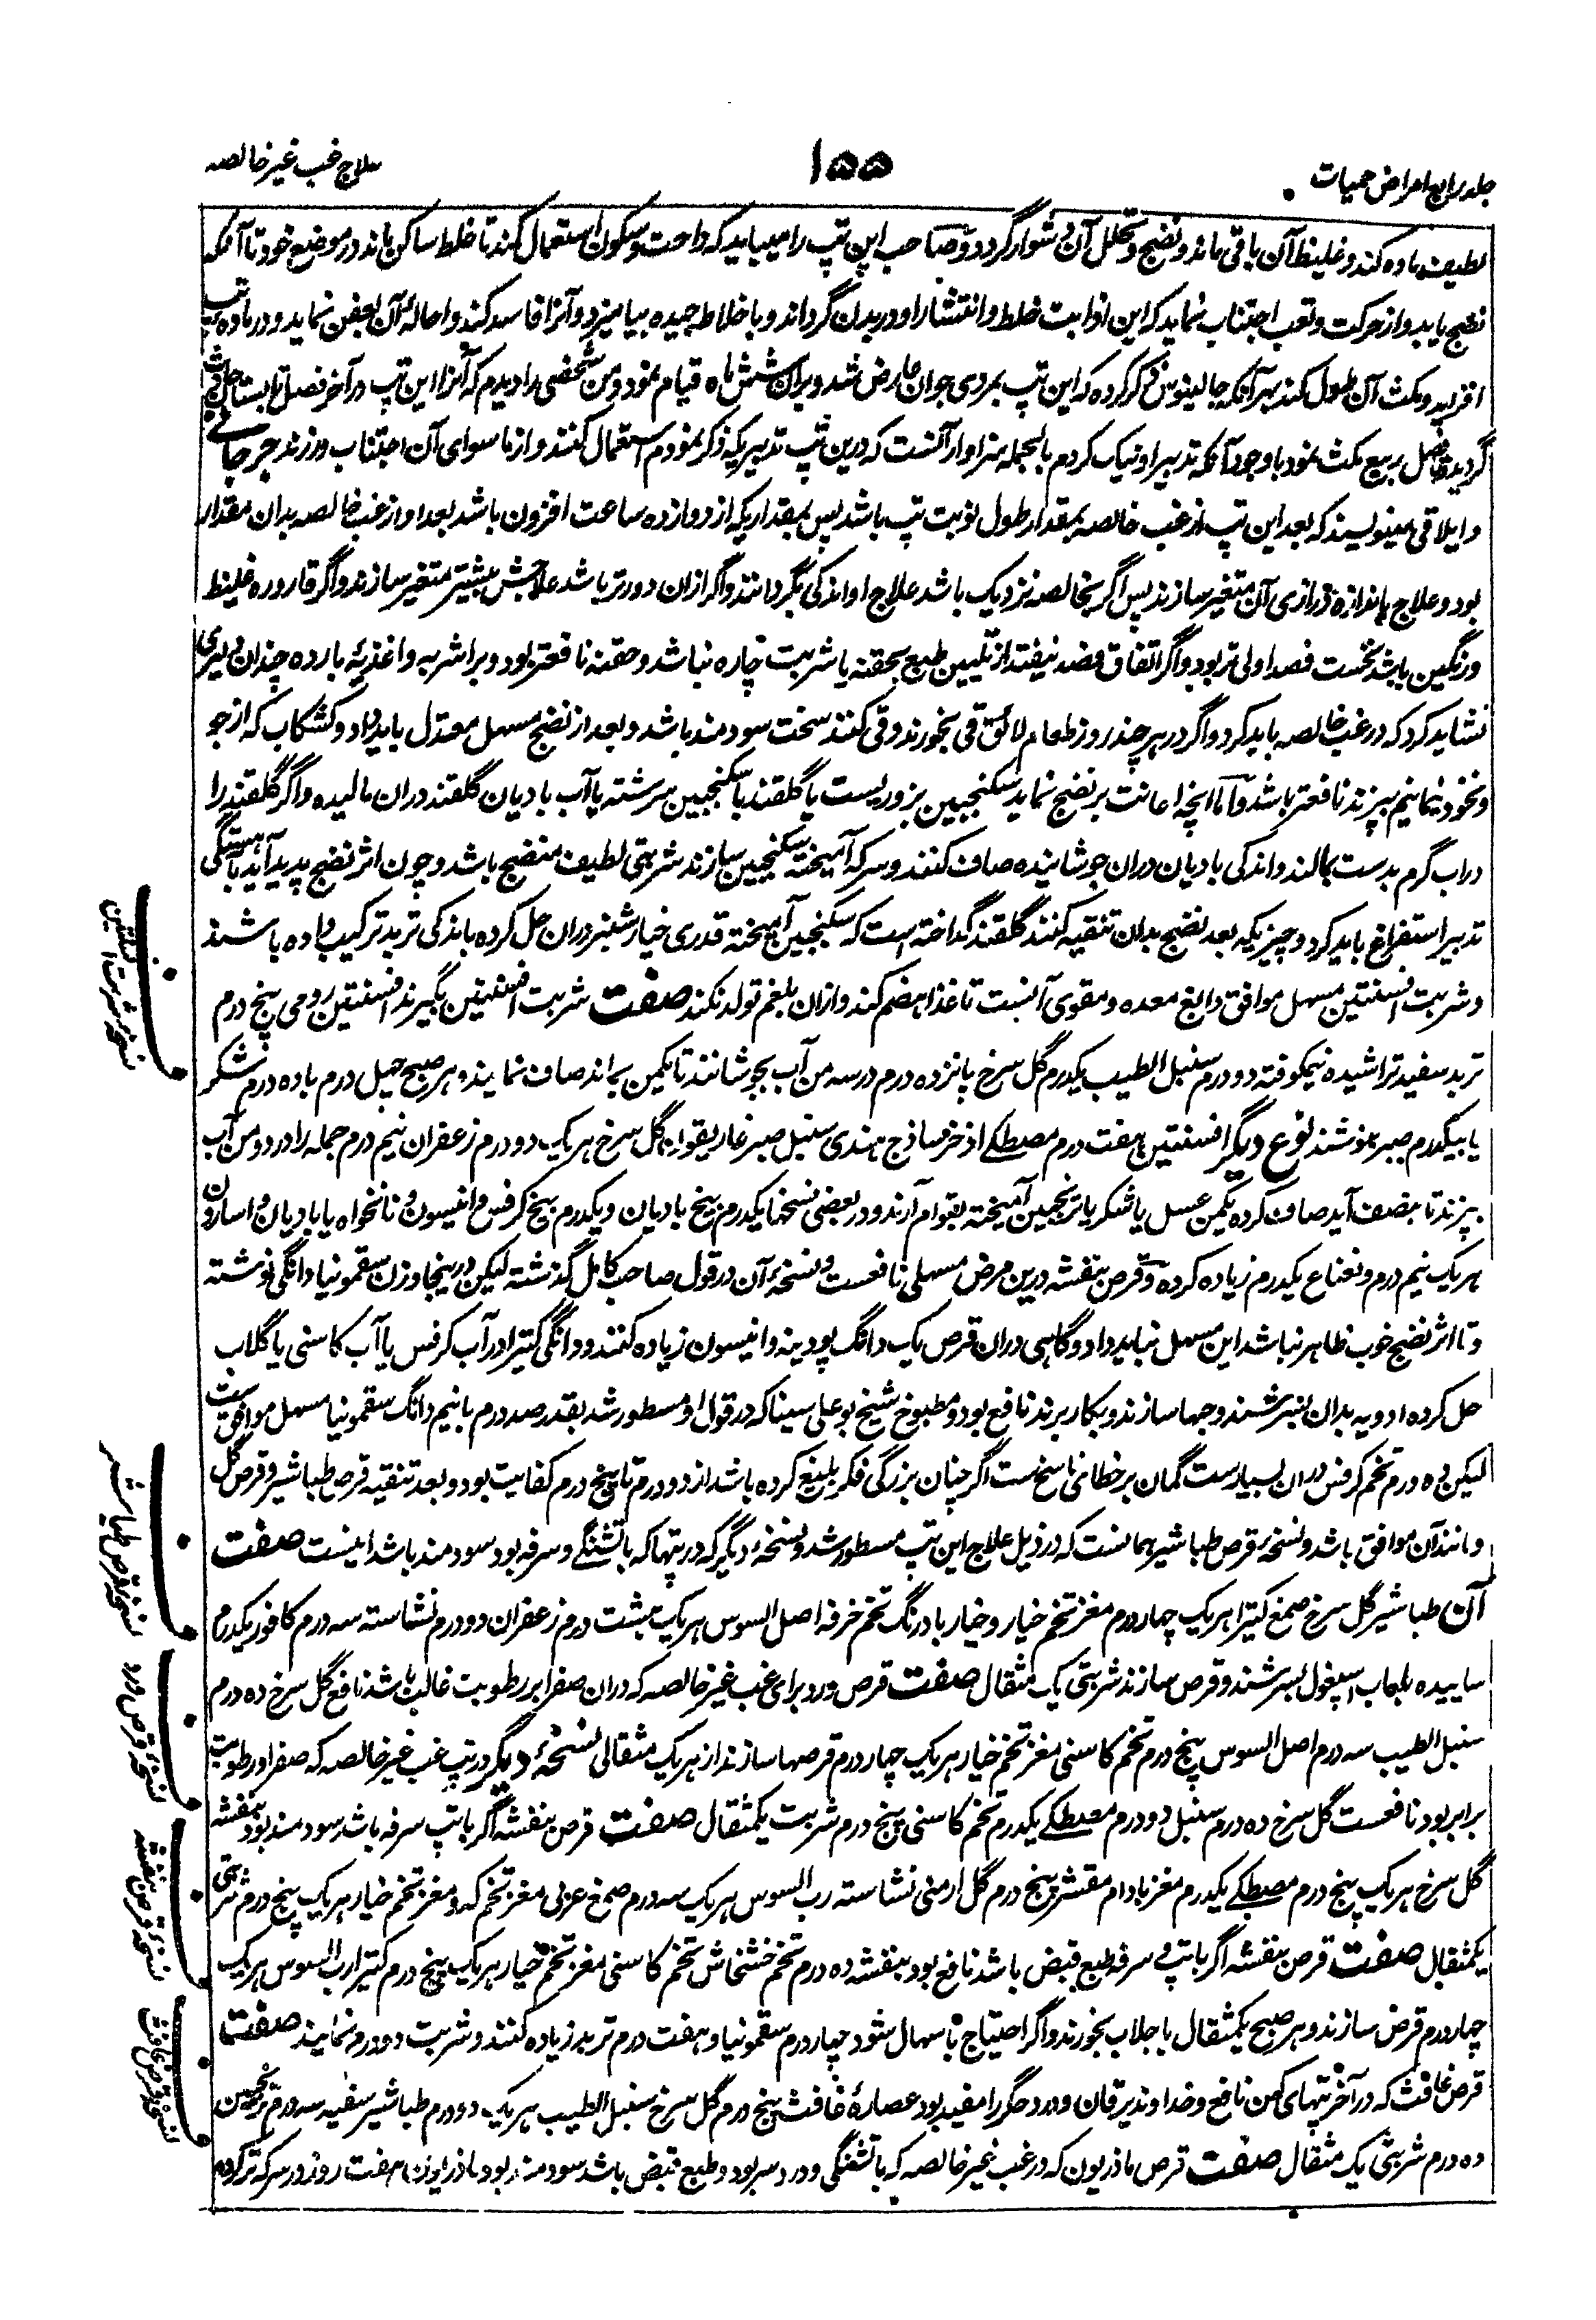 جلد رابع امراض حمیات
۱۵۵
علاج غب غیر خالصه
لطیف ماده کند و غلیظ آن باقی ماند و نضج و تحلل آن دشوار گردد و صاحب این تپ را میباید که راحت و سکون استعمال کند تا خلط ساکن ماند در موضع خود تا آنکه
نضج یابد و از حرکت و تعب اجتناب نماید که این اذابت خلط و انتشار او در بدن گرداند و با خلاط جیده بیامیزد و آنرا فاسد کند و احالهٔ آن بعفن نماید و در ماده تپ
افزاید و مکث آن طول کند بهر آنکه جالینوس ذکر کرده که این تپ بمردی جوان عارض شد و بران شش ماه قیام نمود و من شخصی را دیدم که آنرا این تپ در آخر فصل تابستان حادث
گردید و تا فصل ربیع مکث نمود با وجود آنکه تدبیر او نیک کردم بالجمله سزاوار آنست که درین تپ تدبیریکه ذکر نمودم استعمال کنند و از ماسوای آن اجتناب ورزند جرجانی
و ایلاقی مینویسند که بعد این تپ از غب خالصه بمقدار طول نوبت تپ باشد پس بمقداریکه از دوازده ساعت افزون باشد بعد او از غب خالصه بدان مقدار
بود و علاج باندازهٔ درازی آن متغیر سازند پس اگر بخالصه نزدیک باشد علاج او اندکی بگردانند و اگر ازان دورتر باشد علاجش بیشتر متغیر سازند و اگر قاروره غلیظ
و رنگین باشد نخست فصد اولی تر بود و اگر اتفاق فصد نیفتد از تلیین طبع بحقنه یا شربت چاره نباشد و حقنه نافعتر بود و بر اشربه و اغذیهٔ بارده چندان دلیری
نشاید کرد که در غب خالصه باید کرد و اگر در هر چند روز طعام لائق قی بخورند و قی کنند سخت سودمند باشد و بعد از نضج مسهل معتدل باید داد و کشکاب که از جو
و نخود نیمانیم بپزند نافعتر باشد و اما انچه اعانت بر نضج نماید سکنجبین بزوریست یا گلقند با سکنجبین سرشته یا آب بادیان گلقند دران مالیده و اگر گلقند را
دراب گرم بدست بمالند و اندکی بادیان دران جوشانیده صاف کنند و سرکه آمیخته سکنجبین سازند شربتی لطیف منضج باشد و چون اثر نضج پدید آید بآهستگی
تدبیر استفراغ باید کرد و چیزیکه بعد نضج بدان تنقیه کنند گلقند گداخته است که سکنجبین آمیخته قدری خیارشنبر دران حل کرده باندکی تربد ترکیب داده باشند
و شربت افسنتین مسهل موافق و دابغ معده و مقوی آنست تا غذا هضم کند و ازان بلغم تولد نکند صفت شربت افسنتین بگیرند افسنتین رومی پنج درم
تربد سفید تراشیده نیمکوفته دو درم سنبل الطیب یکدرم گل سرخ پانزده درم در سه من آب بجوشانند تا یکمن بماند صاف نمایند و هر صبح چهل درم با ده درم شکر
یا بیکدرم صبر بنوشند نوع دیگر افسنتین هفت درم مصطکی اذخر ساذج هندی سنبل صبر غاریقون گل سرخ هر یک دو درم زعفران نیم درم جمله را در دو من آب
بپزند تا بنصف آید صاف کرده یکمن عسل یا شکر یا ترنجبین آمیخته بقوام آرند و در بعضی نسخها یکدرم بیخ بادیان و یکدرم بیخ کرفس و انیسون و نانخواه یا بادیان و اسارون
هر یک نیم درم و نعناع یکدرم زیاده کرده و قرص بنفشه درین مرض مسهلی نافعست و نسخهٔ آن در قول صاحب کامل گذشته لیکن درینجا وزن سقمونیا دانگی نوشته
و تا اثر نضج خوب ظاهر نباشد این مسهل نباید داد و گاهی دران قرص یک دانگ پودینه و انیسون زیاده کنند و دانگی کتیرا در آب کرفس یا آب کاسنی یا گلاب
حل کرده ادویه بدان بسرشند و حبها سازند و بکار برند نافع بود و مطبوخ شیخ بوعلی سینا که در قول او مسطور شد بقدر صد درم با نیم دانگ سقمونیا مسهل موافق ست
لیکن ده درم تخم کرفس دران بسیارست گمان بر خطای ناسخ ست اگر چنان بزرگی فکر بلیغ کرده باشد از دو درم تا پنج درم کفایت بود و بعد تنقیه قرص طباشیر و قرص گل
و مانند آن موافق باشد و نسخهٔ قرص طباشیر همانست که در ذیل علاج این تپ مسطور شد و نسخهٔ دیگر که در تپها که با تشنگی و سرفه بود سودمند باشد اینست صفت
آن طباشیر گل سرخ صمغ کتیرا هر یک چهار درم مغز تخم خیار و خیار بادرنگ تخم خرفه اصل السوس هر یک هشت درم زعفران دو درم نشاسته سه درم کافور یکدرم
ساییده بلعاب اسپغول بسرشند و قرص سازند شربتی یک مثقال صفت قرص ورد برای غب غیر خالصه که دران صفرا بر رطوبت غالب باشد نافع گل سرخ ده درم
سنبل الطیب سه درم اصل السوس پنج درم تخم کاسنی مغز تخم خیار هر یک چهار درم قرصها سازند از هر یک مثقالی نسخهٔ دیگر در تپ غب غیر خالصه که صفرا و رطوبت
برابر بود نافعست گل سرخ ده درم سنبل دو درم مصطکی یکدرم تخم کاسنی پنج درم شربت یکمثقال صفت قرص بنفشه اگر با تپ سرفه باشد سودمند بود بنفشه
گل سرخ هر یک پنج درم مصطکی یکدرم مغز بادام مقشر پنج درم گل ارمنی نشاسته رب السوس هر یک سه درم صمغ عربی مغز تخم کدو مغز تخم خیار هر یک پنج درم شربتی
یکمثقال صفت قرص بنفشه اگر با تپ و سرفه طبع قبض باشد نافع بود بنفشه ده درم تخم خشخاش تخم کاسنی مغز تخم خیار هر یک پنج درم کتیرا رب السوس هر یک
چهار درم قرص سازند و هر صبح یکمثقال با جلاب بخورند و اگر احتیاج باسهال شود چهار درم سقمونیا و هفت درم تربد زیاده کنند و شربت دو درم نمایند صفت
قرص غافث که در آخر تپهای کهن نافع و خداوند یرقان و درد جگر را مفید بود عصارهٔ غافث پنج درم گل سرخ سنبل الطیب هر یک دو درم طباشیر سفید سه درم ترنجبین
ده درم شربتی یک مثقال صفت قرص ماذریون که در غب غیر خالصه که با تشنگی و درد سر بود و طبع قبض باشد سودمند بود ماذریون هفت روز در سرکه تر کرده
نسخهٔ شربت افسنتین
نسخهٔ قرص طباشیر
نسخهٔ قرص ورد
نسخهٔ قرص بنفشه
نسخهٔ قرص غافث